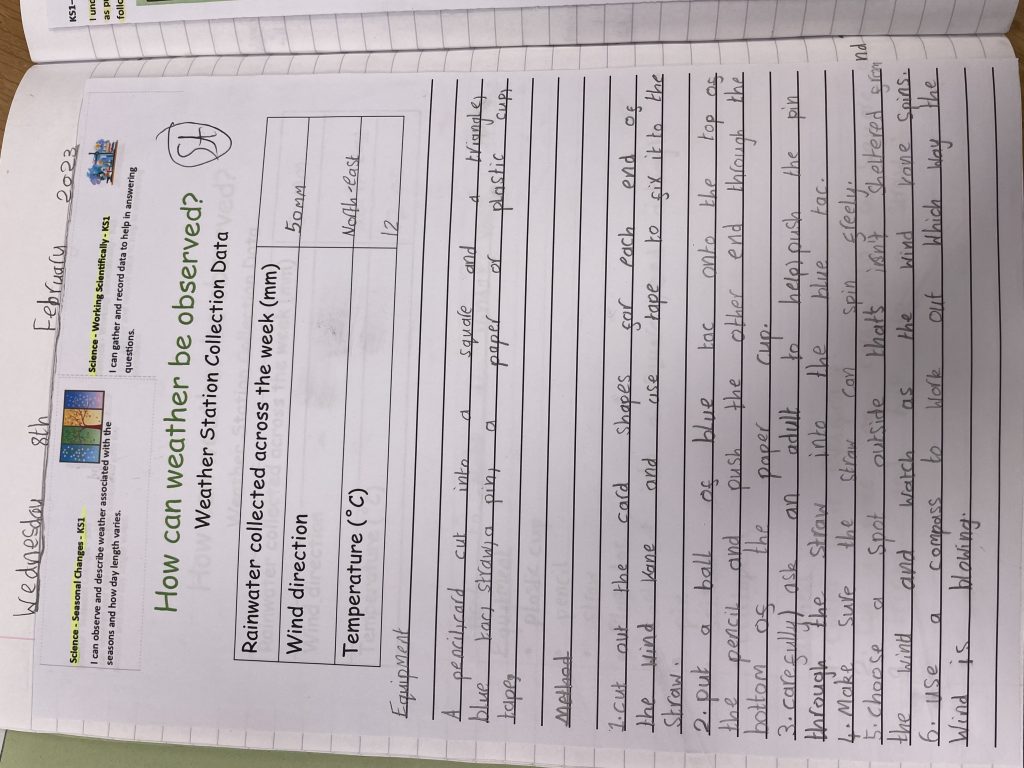 Wednesday 8th February 2023
Science - Seasonal Changes - KS1
I can observe and describe weather associated with the
seasons and how day length varies.
Science - Working Scientifically - KS1
I can gather and record data to help in answering
questions.
How can weather be observed?
Weather Station Collection Data
Rainwater collected across the week (mm) 50mm
Wind direction North-east
Temperature (°C) 12
Equipment
A pencil, card cut into a square and a triangle,
blue tac, straw, a pin, a paper or plastic cup,
tape,
Method
1. cut out the card shapes for each end of
the wind vane and use tape to fix it to the
straw.
2. put a ball of blue tac onto the top of
the pencil and push the other end through the
bottom of the paper cup.
3. carefully ask an adult to help) push the pin
through the straw into the blue tac.
4. Make sure the straw can spin freely.
5. choose a spot outside that's isn't sheltered from
the wind and watch as the wind vane spins.
6. use a compass to work out which way the
wind is blowing.
KS1-
I und
as pa
follo